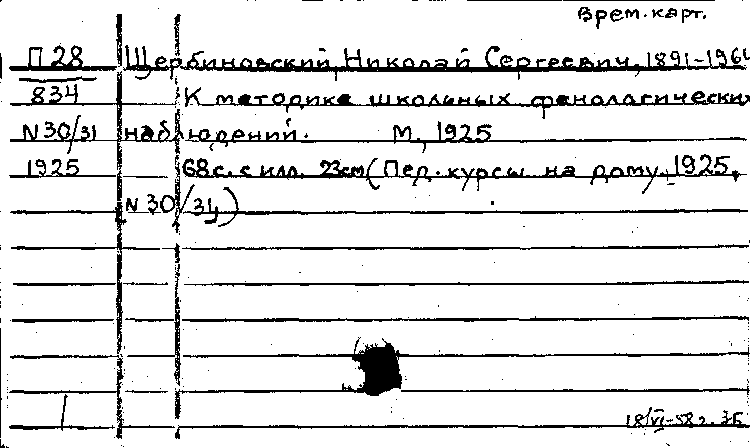 Врем. карт.
П 28 Щербиновский, Николай Сергеевич, 1891-1964
834 К методике школьных фенологических
N 30/31 наблюдений. М., 1925
1925 68 с. с илл. 23см (Пед. курсы на дому. 1925,
N 30/31)
18/VI-58г.